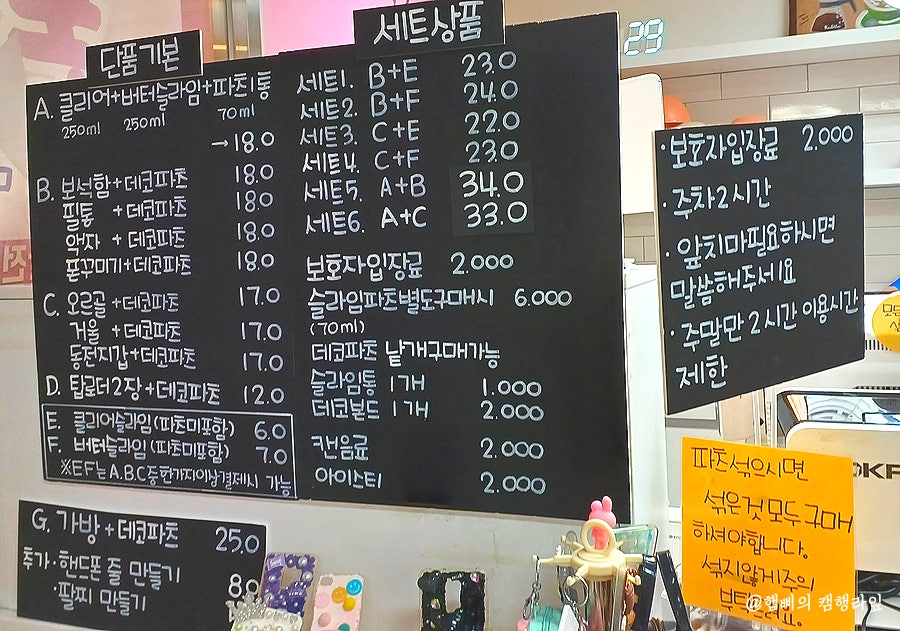 단품기본
A. 클리어+버터슬라임+파츠1통
250ml 250ml 70ml
→18.0
B. 보석함+데코파츠 18.0
필통 +데코파츠 18.0
액자 +데코파츠 18.0
폰꾸미기+데코파츠 18.0
C. 오르골+데코파츠 17.0
거울 +데코파츠 17.0
동전지갑+데코파츠 17.0
D. 탑로더2장+데코파츠 12.0
E. 클리어슬라임(파츠미포함) 6.0
F. 버터슬라임(파츠미포함) 7.0
※E.F는A.B.C중한가지이상결제시 가능
G. 가방+데코파츠 25.0
추가·핸드폰 줄 만들기
·팔찌 만들기 8.0
세트상품
세트1. B+E 23.0
세트2. B+F 24.0
세트3. C+E 22.0
세트4. C+F 23.0
세트5. A+B 34.0
세트6. A+C 33.0
보호자입장료 2.000
슬라임파츠별도구매시 6.000
(70ml)
데코파츠 낱개구매가능
슬라임통 1개 1.000
데코본드 1개 2.000
캔음료 2.000
아이스티 2.000
29
·보호자입장료 2.000
·주차2시간
·앞치마필요하시면
말씀해주세요
·주말만 2시간 이용시간
제한
파츠섞으시면
섞은것모두구매
하셔야합니다.
섞지않게주의
@햅삐의 캠행라임